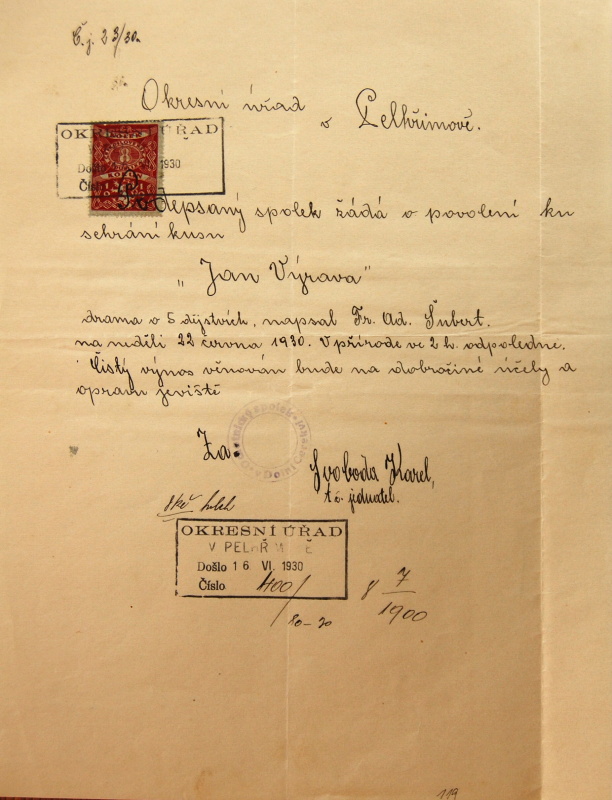 Č.j. 23/30.
Okresní úřad
v Pelhřimově.
OKRESNÍ ÚŘAD
Došlo 1930
Číslo
depsaný spolek žádá o povolení ku
sehrání kusu
„Jan Výrava"
drama o 5 dějstvích, napsal Fr. Ad. Šubert.
na neděli 22 června 1930. V přírodě ve 2 h. odpoledne.
Čistý výnos věnován bude na dobročiné účely a
opravu jeviště
Za:
Svoboda Karel,
t.č. jednatel.
OKRESNÍ ÚŘAD
V PELHŘIMOVĚ
Došlo 16 VI. 1930
Číslo 400/
80-30
8 7/1900
119